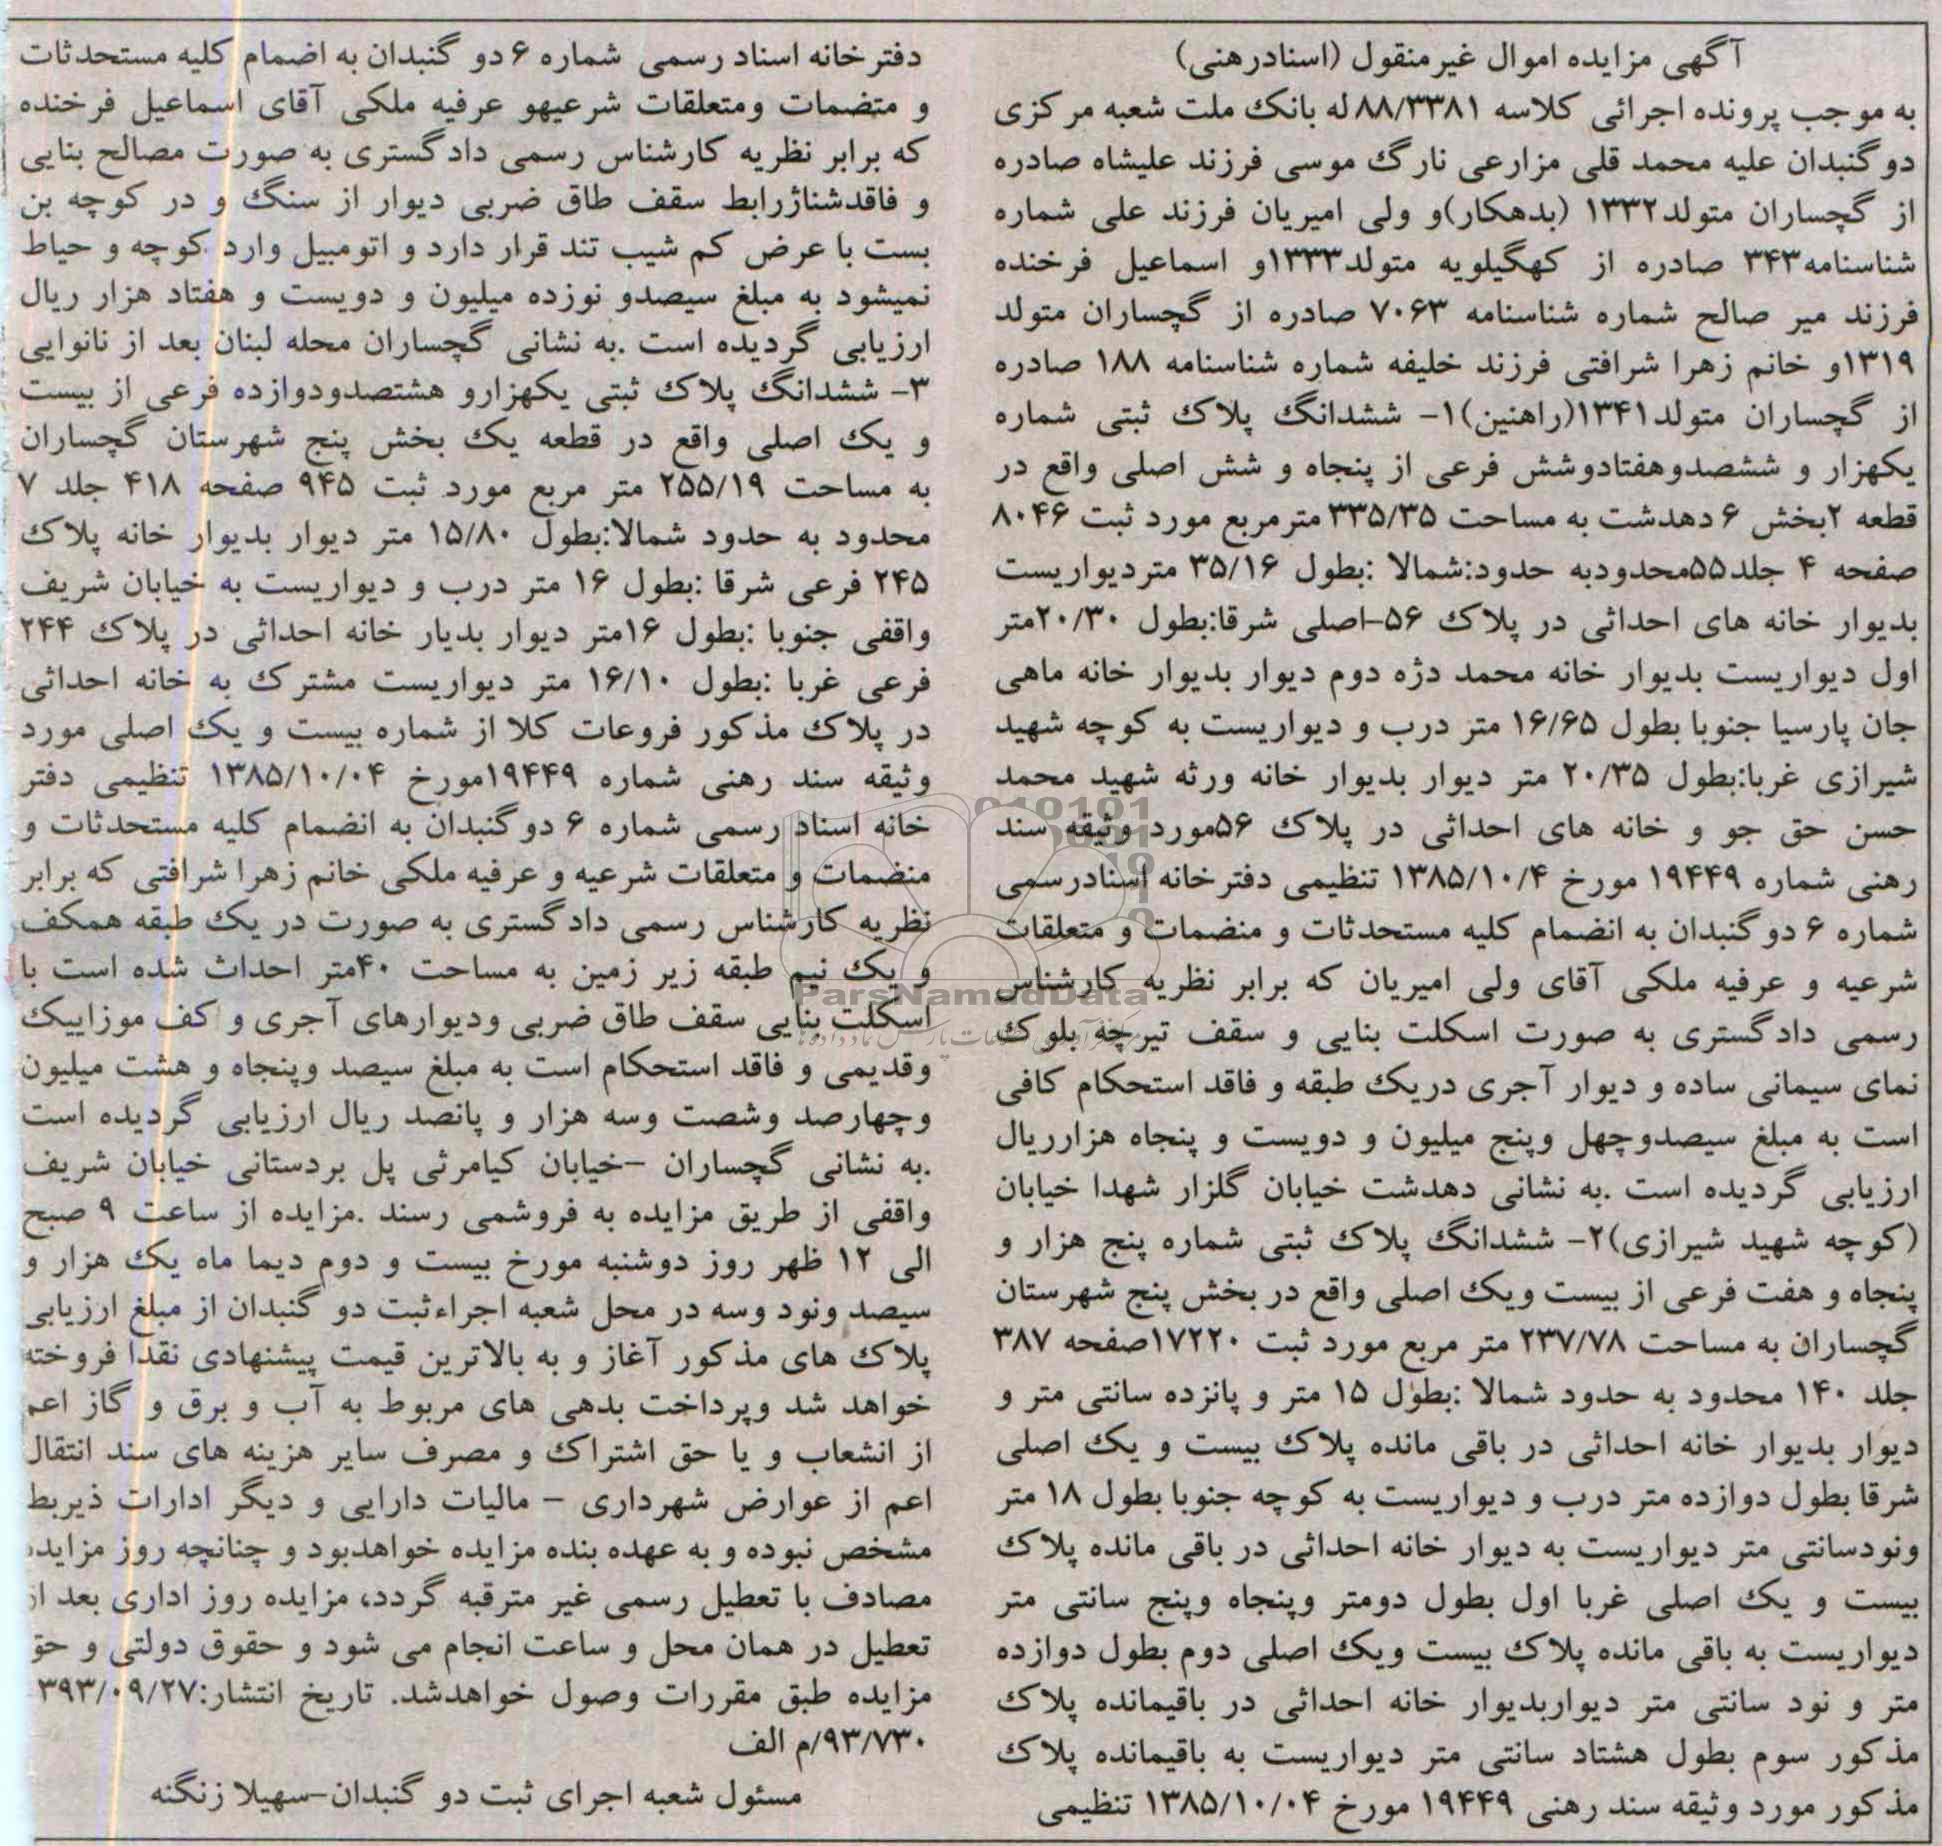 آگهی مزایده اموال غیرمنقول (اسنادرهنی)
به موجب پرونده اجرائی کلاسه ۸۸/۳۳۸۱له بانک ملت شعبه مرکزی
دوگنبدان علیه محمد قلی مزارعی نارگ موسی فرزند علیشاه صادره
از گچساران متولد۱۳۳۲ (بدهکار)و ولی امیریان فرزند علی شماره
شناسنامه۳۴۳ صادره از کهگیلویه متولد۱۳۳۳و اسماعیل فرخنده
فرزند میر صالح شماره شناسنامه ۷۰۶۳ صادره از گچساران متولد
۱۳۱۹و خانم زهرا شرافتی فرزند خلیفه شماره شناسنامه ۱۸۸ صادره
از گچساران متولد۱۳۴۱(راهنین)۱- ششدانگ پلاک ثبتی شماره
یکهزار و ششصدوهفتادوشش فرعی از پنجاه و شش اصلی واقع در
قطعه ۲بخش ۶ دهدشت به مساحت ۳۳۵/۳۵ مترمربع مورد ثبت ۸۰۴۶
صفحه ۴ جلد۵۵محدودبه حدود:شمالا :بطول ۳۵/۱۶ متردیواریست
بدیوار خانه های احداثی در پلاک ۵۶-اصلی شرقا:بطول ۲۰/۳۰متر
اول دیواریست بدیوار خانه محمد دژه دوم دیوار بدیوار خانه ماهی
جان پارسیا جنوبا بطول ۱۶/۶۵ متر درب و دیواریست به کوچه شهید
شیرازی غربا:بطول ۲۰/۳۵ متر دیوار بدیوار خانه ورثه شهید محمد
حسن حق جو و خانه های احداثی در پلاک ۵۶مورد وثیقه سند
رهنی شماره ۱۹۴۴۹ مورخ ۱۳۸۵/۱۰/۴ تنظیمی دفترخانه اسنادرسمی
شماره ۶ دوگنبدان به انضمام کلیه مستحدثات و منضمات و متعلقات
شرعیه و عرفیه ملکی آقای ولی امیریان که برابر نظریه کارشناس
رسمی دادگستری به صورت اسکلت بنایی و سقف تیرچه بلوک
نمای سیمانی ساده و دیوار آجری دریک طبقه و فاقد استحکام کافی
است به مبلغ سیصدوچهل وپنج میلیون و دویست و پنجاه هزارریال
ارزیابی گردیده است .به نشانی دهدشت خیابان گلزار شهدا خیابان
(کوچه شهید شیرازی)۲- ششدانگ پلاک ثبتی شماره پنج هزار و
پنجاه و هفت فرعی از بیست ویک اصلی واقع در بخش پنج شهرستان
گچساران به مساحت ۲۳۷/۷۸ متر مربع مورد ثبت ۱۷۲۲۰صفحه ۳۸۷
جلد ۱۴۰ محدود به حدود شمالا :بطول ۱۵ متر و پانزده سانتی متر و
دیوار بدیوار خانه احداثی در باقی مانده پلاک بیست و یک اصلی
شرقا بطول دوازده متر درب و دیواریست به کوچه جنوبا بطول ۱۸ متر
ونودسانتی متر دیواریست به دیوار خانه احداثی در باقی مانده پلاک
بیست و یک اصلی غربا اول بطول دومتر وپنجاه وپنج سانتی متر
دیواریست به باقی مانده پلاک بیست ویک اصلی دوم بطول دوازده
متر و نود سانتی متر دیواربدیوار خانه احداثی در باقیمانده پلاک
مذکور سوم بطول هشتاد سانتی متر دیواریست به باقیمانده پلاک
مذکور مورد وثیقه سند رهنی ۱۹۴۴۹ مورخ ۱۳۸۵/۱۰/۰۴ تنظیمی
دفترخانه اسناد رسمی شماره ۶ دو گنبدان به اضمام کلیه مستحدثات
و متضمات ومتعلقات شرعیهو عرفیه ملکی آقای اسماعیل فرخنده
که برابر نظریه کارشناس رسمی دادگستری به صورت مصالح بنایی
و فاقدشناژرابط سقف طاق ضربی دیوار از سنگ و در کوچه بن
بست با عرض کم شیب تند قرار دارد و اتومبیل وارد کوچه و حیاط
نمیشود به مبلغ سیصدو نوزده میلیون و دویست و هفتاد هزار ریال
ارزیابی گردیده است .به نشانی گچساران محله لبنان بعد از نانوایی
۳- ششدانگ پلاک ثبتی یکهزارو هشتصدودوازده فرعی از بیست
و یک اصلی واقع در قطعه یک بخش پنج شهرستان گچساران
به مساحت ۲۵۵/۱۹ متر مربع مورد ثبت ۹۴۵ صفحه ۴۱۸ جلد ۷
محدود به حدود شمالا:بطول ۱۵/۸۰ متر دیوار بدیوار خانه پلاک
۲۴۵ فرعی شرقا :بطول ۱۶ متر درب و دیواریست به خیابان شریف
واقفی جنوبا :بطول ۱۶متر دیوار بدیار خانه احداثی در پلاک ۲۴۴
فرعی غربا :بطول ۱۶/۱۰ متر دیواریست مشترک به خانه احداثی
در پلاک مذکور فروعات کلا از شماره بیست و یک اصلی مورد
وثیقه سند رهنی شماره ۱۹۴۴۹مورخ ۱۳۸۵/۱۰/۰۴ تنظیمی دفتر
خانه اسناد رسمی شماره ۶ دوگنبدان به انضمام کلیه مستحدثات و
منضمات و متعلقات شرعیه و عرفیه ملکی خانم زهرا شرافتی که برابر
نظریه کارشناس رسمی دادگستری به صورت در یک طبقه همکف
و یک نیم طبقه زیر زمین به مساحت ۴۰متر احداث شده است با
اسکلت بنایی سقف طاق ضربی ودیوارهای آجری و کف موزاییک
وقدیمی و فاقد استحکام است به مبلغ سیصد وپنجاه و هشت میلیون
وچهارصد وشصت وسه هزار و پانصد ریال ارزیابی گردیده است
.به نشانی گچساران -خیابان کیامرثی پل بردستانی خیابان شریف
واقفی از طریق مزایده به فروشمی رسند .مزایده از ساعت ۹ صبح
الی ۱۲ ظهر روز دوشنبه مورخ بیست و دوم دیما ماه یک هزار و
سیصد ونود وسه در محل شعبه اجراءثبت دو گنبدان از مبلغ ارزیابی
پلاک های مذکور آغاز و به بالاترین قیمت پیشنهادی نقدا فروخته
خواهد شد وپرداخت بدهی های مربوط به آب و برق و گاز اعم
از انشعاب و یا حق اشتراک و مصرف سایر هزینه های سند انتقال
اعم از عوارض شهرداری - مالیات دارایی و دیگر ادارات ذیربط
مشخص نبوده و به عهده بنده مزایده خواهدبود و چنانچه روز مزایده
مصادف با تعطیل رسمی غیر مترقبه گردد، مزایده روز اداری بعد از
تعطیل در همان محل و ساعت انجام می شود و حقوق دولتی و حق
مزایده طبق مقررات وصول خواهدشد. تاریخ انتشار:۳۹۳/۰۹/۲۷
۹۳/۷۳۰/م الف
مسئول شعبه اجرای ثبت دو گنبدان-سهیلا زنگنه
ParsNamadData